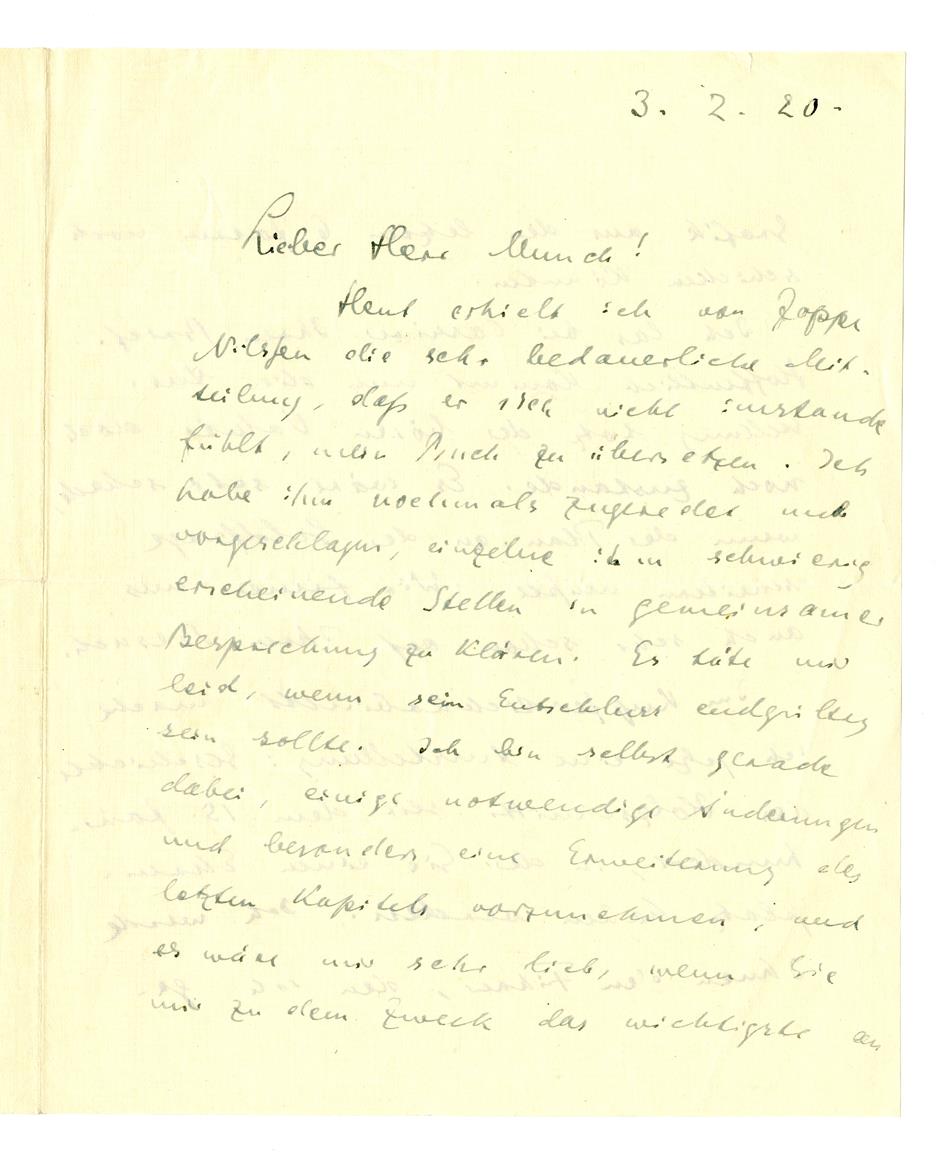 3. 2. 20.
Lieber Herr Munch!
Heut erhielt ich von Jappe
Nilssen die sehr bedauerliche Mit-
teilung, daß er sich nicht imstande
fühlt, mein Buch zu übersetzen. Ich
habe ihm nochmals zugeredet und
vorgeschlagen, einzelne ihm schwierig
erscheinende Stellen in gemeinsamer
Besprechung zu klären. Es täte mir
leid, wenn sein Entschluss endgiltig
sein sollte. Ich bin selbst gerade
dabei, einige notwendige Änderungen
und besonders eine Erweiterung des
letzten Kapitels vorzunehmen, und
es wäre mir sehr lieb, wenn Sie
mir zu dem Zweck das wichtigste an